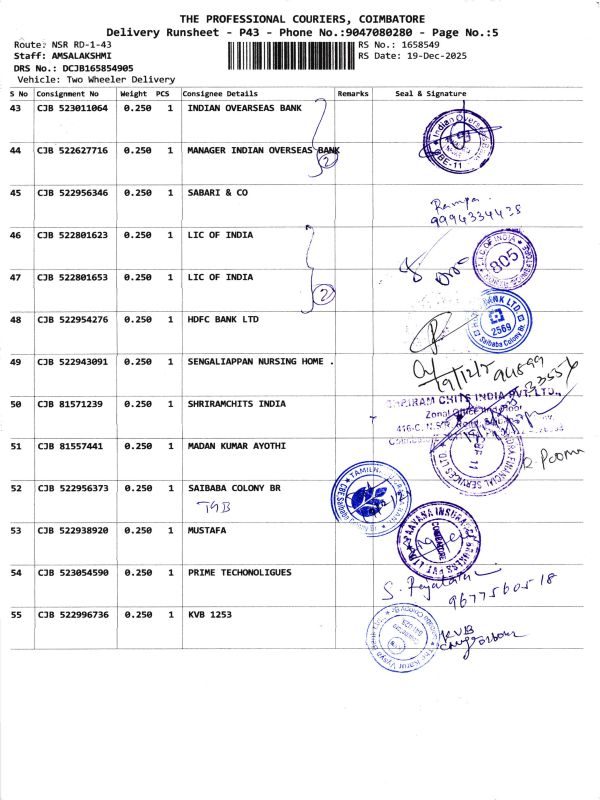 THE PROFESSIONAL COURIERS, COIMBATORE
Delivery Runsheet - P43 - Phone No.:9047080280 - Page No.:5
Route: NSR RD-1-43 RS No.: 1658549
Staff: AMSALAKSHMI RS Date: 19-Dec-2025
DRS No.: DCJB165854905
Vehicle: Two Wheeler Delivery
S No Consignment No Weight PCS Consignee Details Remarks Seal & Signature
43 CJB 523011064 0.250 1 INDIAN OVEARSEAS BANK
44 CJB 522627716 0.250 1 MANAGER INDIAN OVERSEAS BANK 2
45 CJB 522956346 0.250 1 SABARI & CO
9994334435
46 CJB 522801623 0.250 1 LIC OF INDIA
LIC OF INDIA 805
47 CJB 522801653 0.250 1 LIC OF INDIA 2
48 CJB 522954276 0.250 1 HDFC BANK LTD
BANK LTD 2569 Saibaba Colony Br.
49 CJB 522943091 0.250 1 SENGALIAPPAN NURSING HOME .
50 CJB 81571239 0.250 1 SHRIRAMCHITS INDIA
SHRIRAM CHITS INDIA PVT. LTD.,
51 CJB 81557441 0.250 1 MADAN KUMAR AYOTHI
52 CJB 522956373 0.250 1 SAIBABA COLONY BR
TGB
53 CJB 522938920 0.250 1 MUSTAFA
54 CJB 523054590 0.250 1 PRIME TECHONOLIGUES
9677560518
55 CJB 522996736 0.250 1 KVB 1253
KVB